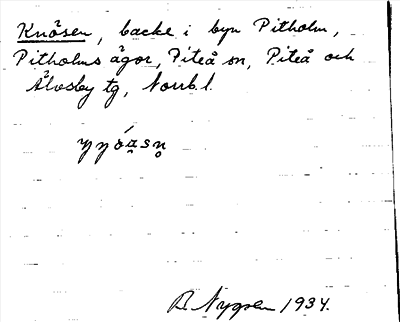 Knösen, backe i byn Pitholm,
Pitholms ägor, Piteå sn, Piteå och
Älvsby tg, Norrb. l.
R. Nygren 1934.